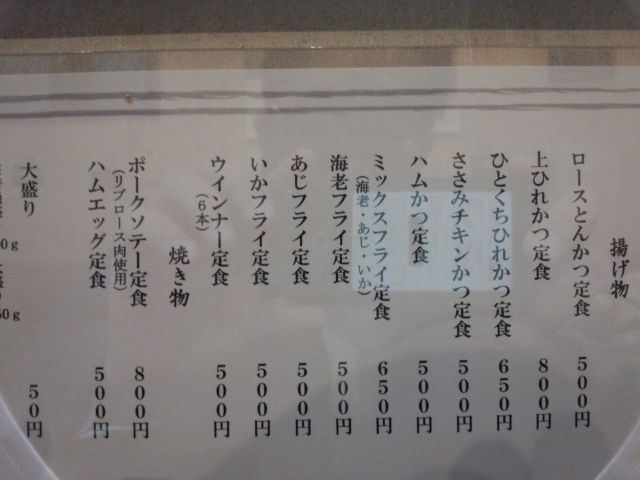 揚げ物
ロースとんかつ定食 500円
上ひれかつ定食 800円
ひとくちひれかつ定食 650円
ささみチキンかつ定食 500円
ハムかつ定食 500円
ミックスフライ定食 650円
(海老・あじ・いか)
海老フライ定食 500円
あじフライ定食 500円
いかフライ定食 500円
ウインナー定食 500円
(6本)
焼き物
ポークソテー定食 800円
(リブロース肉使用)
ハムエッグ定食 500円
大盛り 50円